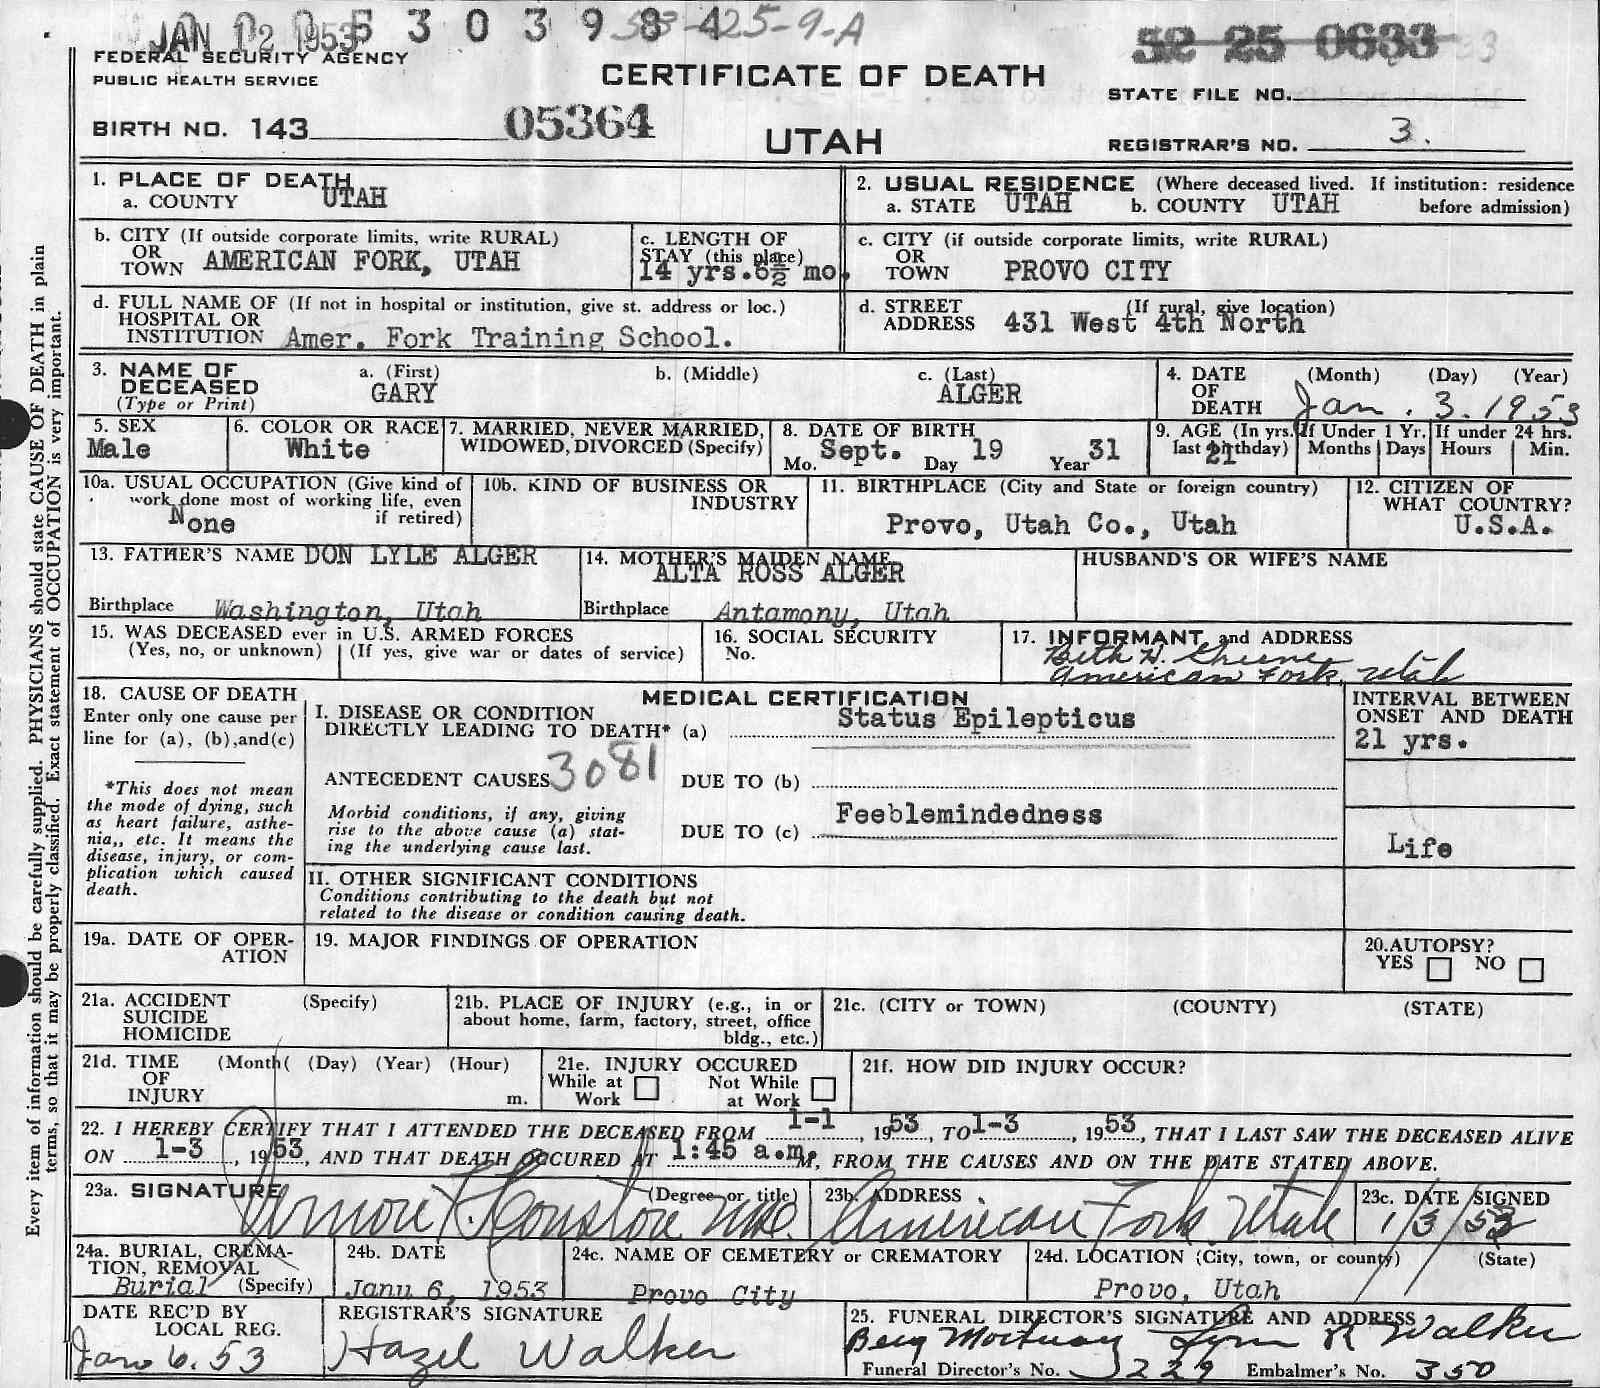 JAN 12 1953
5 3 0 3 9 8 4
53-425-9-A
52 25 0633
FEDERAL SECURITY AGENCY
PUBLIC HEALTH SERVICE
CERTIFICATE OF DEATH
STATE FILE NO.
BIRTH NO. 143
05364
UTAH
REGISTRAR'S NO. 3.
1. PLACE OF DEATH
a. COUNTY UTAH
2. USUAL RESIDENCE (Where deceased lived. If institution: residence before admission)
a. STATE UTAH b. COUNTY UTAH
b. CITY (If outside corporate limits, write RURAL)
OR
TOWN AMERICAN FORK, UTAH
c. LENGTH OF
STAY (this place)
14 yrs. 6½ mo.
c. CITY (if outside corporate limits, write RURAL)
OR
TOWN PROVO CITY
d. FULL NAME OF (If not in hospital or institution, give st. address or loc.)
HOSPITAL OR
INSTITUTION Amer. Fork Training School.
d. STREET (If rural, give location)
ADDRESS 431 West 4th North
3. NAME OF
DECEASED
(Type or Print)
a. (First)
GARY
b. (Middle)
c. (Last)
ALGER
4. DATE
OF
DEATH
(Month) (Day) (Year)
Jan. 3. 1953
5. SEX
Male
6. COLOR OR RACE
White
7. MARRIED, NEVER MARRIED,
WIDOWED, DIVORCED (Specify)
8. DATE OF BIRTH
Mo. Sept. Day 19 Year 31
9. AGE (In yrs.
last birthday)
21
If Under 1 Yr.
Months Days
If under 24 hrs.
Hours Min.
10a. USUAL OCCUPATION (Give kind of
work done most of working life, even
if retired)
None
10b. KIND OF BUSINESS OR
INDUSTRY
11. BIRTHPLACE (City and State or foreign country)
Provo, Utah Co., Utah
12. CITIZEN OF
WHAT COUNTRY?
U.S.A.
13. FATHER'S NAME DON LYLE ALGER
Birthplace Washington, Utah
14. MOTHER'S MAIDEN NAME
ALTA ROSS ALGER
Birthplace Antamony, Utah
HUSBAND'S OR WIFE'S NAME
15. WAS DECEASED ever in U.S. ARMED FORCES
(Yes, no, or unknown) (If yes, give war or dates of service)
16. SOCIAL SECURITY
No.
17. INFORMANT and ADDRESS
Beth H. Greene
American Fork, Utah
18. CAUSE OF DEATH
Enter only one cause per
line for (a), (b), and (c)
*This does not mean
the mode of dying, such
as heart failure, asthe-
nia,, etc. It means the
disease, injury, or com-
plication which caused
death.
MEDICAL CERTIFICATION
I. DISEASE OR CONDITION
DIRECTLY LEADING TO DEATH* (a) Status Epilepticus
ANTECEDENT CAUSES 3081
DUE TO (b)
Morbid conditions, if any, giving
rise to the above cause (a) stat-
ing the underlying cause last.
DUE TO (c) Feeblemindedness
II. OTHER SIGNIFICANT CONDITIONS
Conditions contributing to the death but not
related to the disease or condition causing death.
INTERVAL BETWEEN
ONSET AND DEATH
21 yrs.
Life
19a. DATE OF OPER-
ATION
19. MAJOR FINDINGS OF OPERATION
20. AUTOPSY?
YES NO
21a. ACCIDENT (Specify)
SUICIDE
HOMICIDE
21b. PLACE OF INJURY (e.g., in or
about home, farm, factory, street, office
bldg., etc.)
21c. (CITY or TOWN) (COUNTY) (STATE)
21d. TIME (Month( (Day) (Year) (Hour)
OF
INJURY m.
21e. INJURY OCCURED
While at Work Not While at Work
21f. HOW DID INJURY OCCUR?
22. I HEREBY CERTIFY THAT I ATTENDED THE DECEASED FROM 1-1, 1953, TO 1-3, 1953, THAT I LAST SAW THE DECEASED ALIVE
ON 1-3, 1953, AND THAT DEATH OCCURED AT 1:45 a.m. M, FROM THE CAUSES AND ON THE DATE STATED ABOVE.
23a. SIGNATURE (Degree or title)
23b. ADDRESS
American Fork, Utah
23c. DATE SIGNED
1/3/53
24a. BURIAL, CREMA-
TION, REMOVAL
(Specify)
Burial
24b. DATE
Janu 6, 1953
24c. NAME OF CEMETERY or CREMATORY
Provo City
24d. LOCATION (City, town, or county) (State)
Provo, Utah
DATE REC'D BY
LOCAL REG.
Jan 6. 53
REGISTRAR'S SIGNATURE
Hazel Walker
25. FUNERAL DIRECTOR'S SIGNATURE AND ADDRESS
Berg Mortuary Lynn R Walker
Funeral Director's No. 229 Embalmer's No. 350
Every item of information should be carefully supplied. PHYSICIANS should state CAUSE OF DEATH in plain
terms, so that it may be properly classified. Exact statement of OCCUPATION is very important.